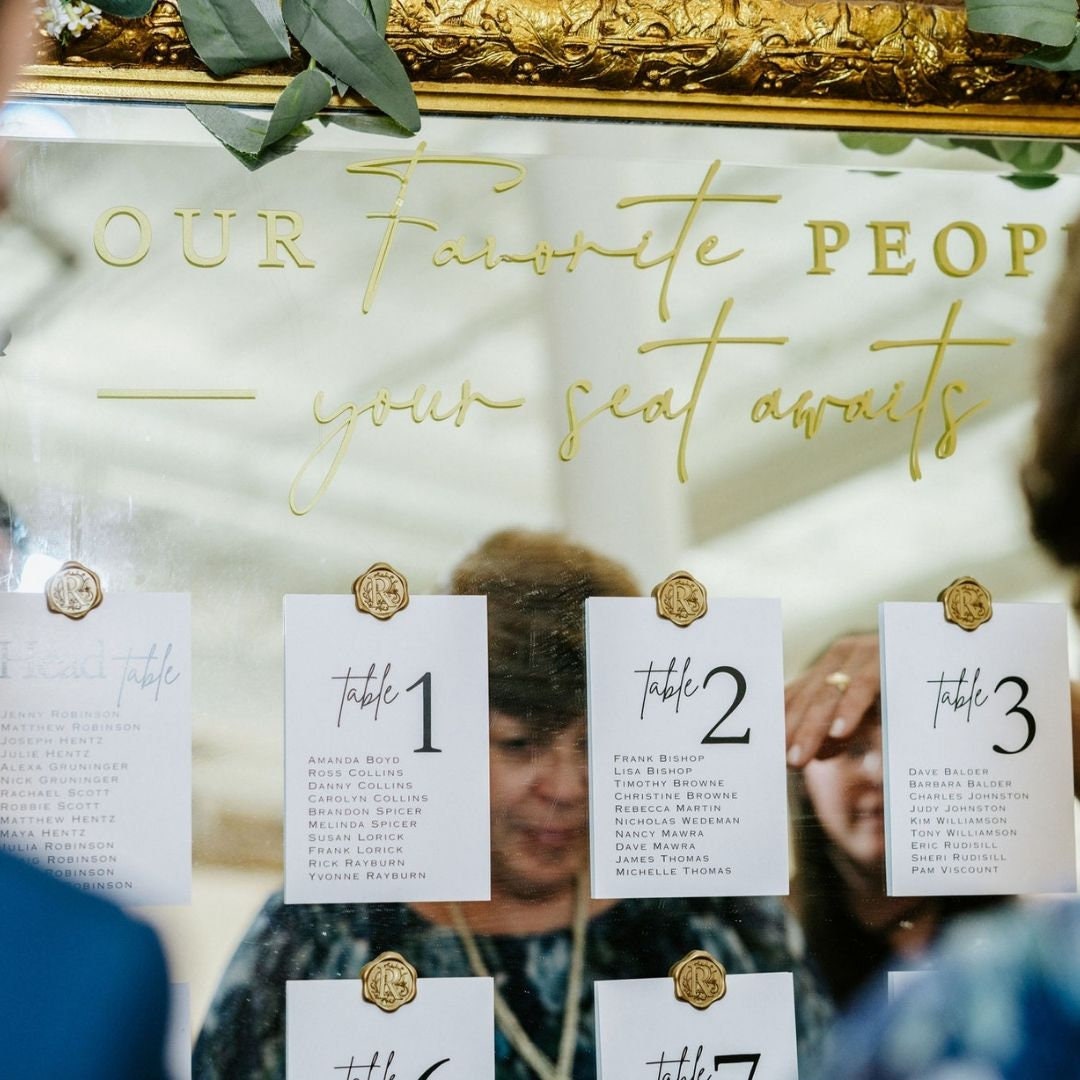 OUR Favorite PEOP
your seat awaits
Head table
JENNY ROBINSON
MATTHEW ROBINSON
JOSEPH HENTZ
JULIE HENTZ
ALEXA GRUNINGER
NICK GRUNINGER
RACHAEL SCOTT
ROBBIE SCOTT
MATTHEW HENTZ
MAYA HENTZ
ROBINSON
ROBINSON
ROBINSON
table 1
AMANDA BOYD
ROSS COLLINS
DANNY COLLINS
CAROLYN COLLINS
BRANDON SPICER
MELINDA SPICER
SUSAN LORICK
FRANK LORICK
RICK RAYBURN
YVONNE RAYBURN
table 2
FRANK BISHOP
LISA BISHOP
TIMOTHY BROWNE
CHRISTINE BROWNE
REBECCA MARTIN
NICHOLAS WEDEMAN
NANCY MAWRA
DAVE MAWRA
JAMES THOMAS
MICHELLE THOMAS
table 3
DAVE BALDER
BARBARA BALDER
CHARLES JOHNSTON
JUDY JOHNSTON
KIM WILLIAMSON
TONY WILLIAMSON
ERIC RUDISILL
SHERI RUDISILL
PAM VISCOUNT
table 6
table 7
R
R
R
R
R
R